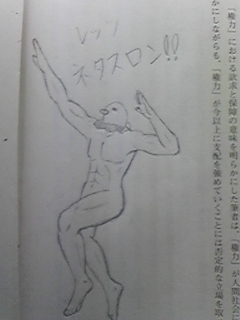 レッツ
ネタスロン!!
「権力」における欲求と保障の意味を明らかにした筆者は、「権力」が人間社会に
かにしながらも、「権力」が今以上に支配を強めていくことには否定的な立場を取